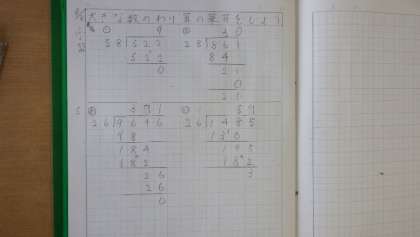 大きな数のわり算の筆算をしよう
9
58)522
522
0
30
28)861
84
21
0
21
371
26)9646
78
184
182
26
26
0
57
26)1485
130
185
182
3